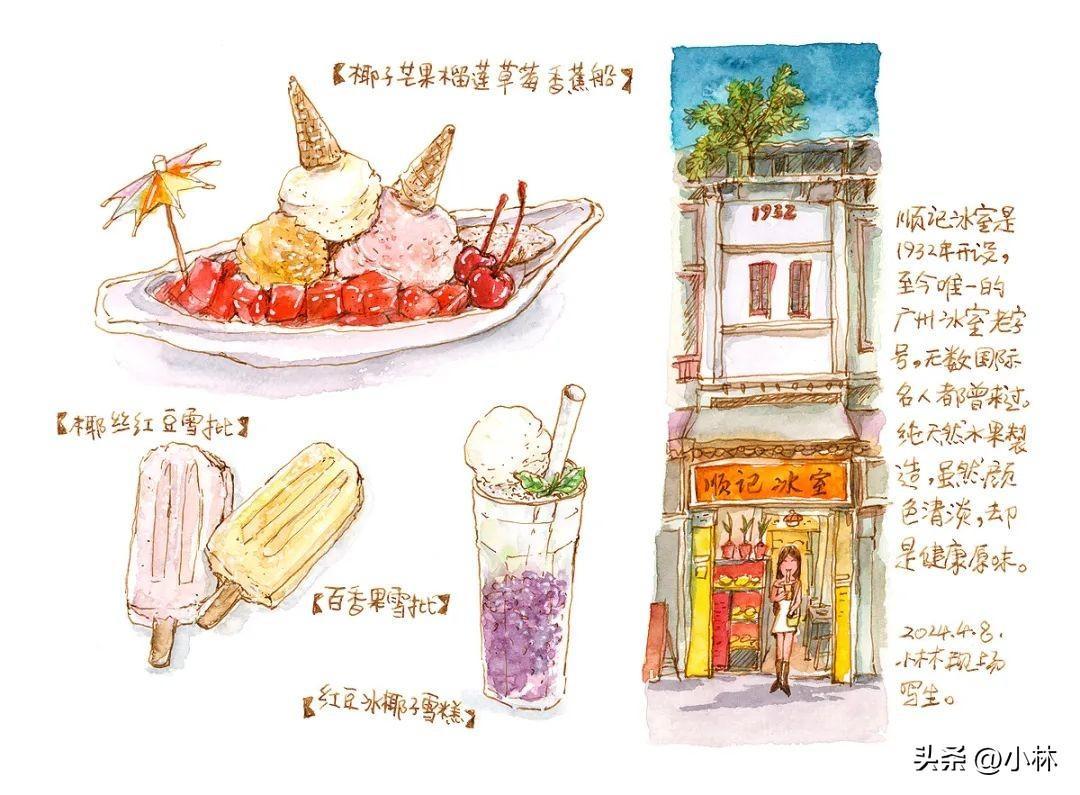 【椰子芒果榴莲草莓香蕉船】
【椰丝红豆雪批】
【百香果雪批】
【红豆冰椰子雪糕】
1932
顺记冰室
顺记冰室是
1932年开设，
至今唯一的
广州冰室老字
号，无数国际
名人都曾来过。
纯天然水果製
造，虽然颜
色清淡，却
是健康原味。
2024.4.8.
小林现场
写生。
头条@小林